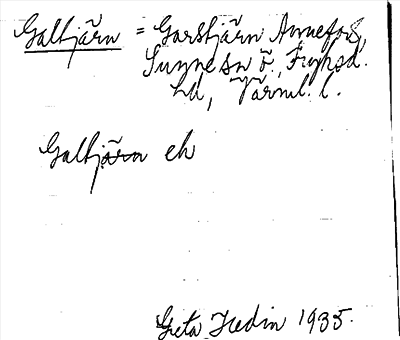 Galtjärn = Garstjärn Annefors,
Sunne sn ö, Fryksd.
hd, Värml. l.
Galtjärn eh
Greta Hedin 1935.